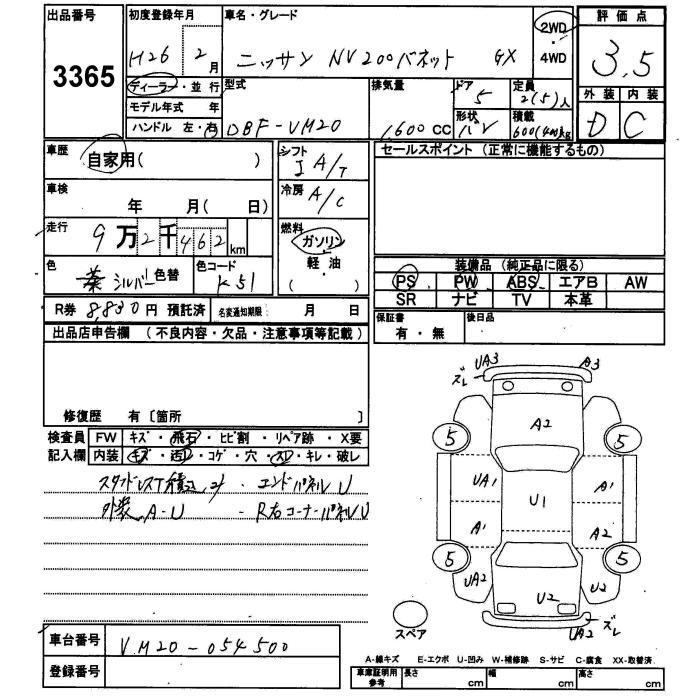 出品番号
3365
初度登録年月
H26 2月
ディーラー・並行
モデル年式 年
ハンドル 左・右
車名・グレード
ニッサン NV200バネット GX
2WD
・
4WD
評価点
3.5
外装 内装
D C
型式
DBF-VM20
排気量
1,600 CC
ドア
5
形状
バン
定員
2(5)人
積載
600(400)kg
車歴
自家用( )
車検
年 月( 日)
走行
9万2千462km
色
茶 シルバー 色替
色コード
K51
シフト
I A/T
冷房
A/C
燃料
ガソリン
軽・油
( )
セールスポイント(正常に機能するもの)
装備品(純正品に限る)
PS PW ABS エアB AW
SR ナビ TV 本革
保証書
有・無
後日品
R券 8,830円 預託済 名変通知期限: 月 日
出品店申告欄(不良内容・欠品・注意事項等記載)
修復歴 有〔箇所 〕
検査員
記入欄
FW キズ・飛石・ヒビ割・リペア跡・X要
内装 キズ・汚レ・コゲ・穴・スレ・キレ・破レ
・エンドパネルU
外装 A-U -R右コーナーパネルU
UA3 A3
ズレ
A2
5 5
UA1 U1 A1
A1 A2
5 5
UA2 U2 U2
UA2 ズレ
スペア
車台番号
VM20-054500
登録番号
A-線キズ E-エクボ U-凹み W-補修跡 S-サビ C-腐食 XX-取替済
車庫証明用
参考
長さ cm 幅 cm 高さ cm